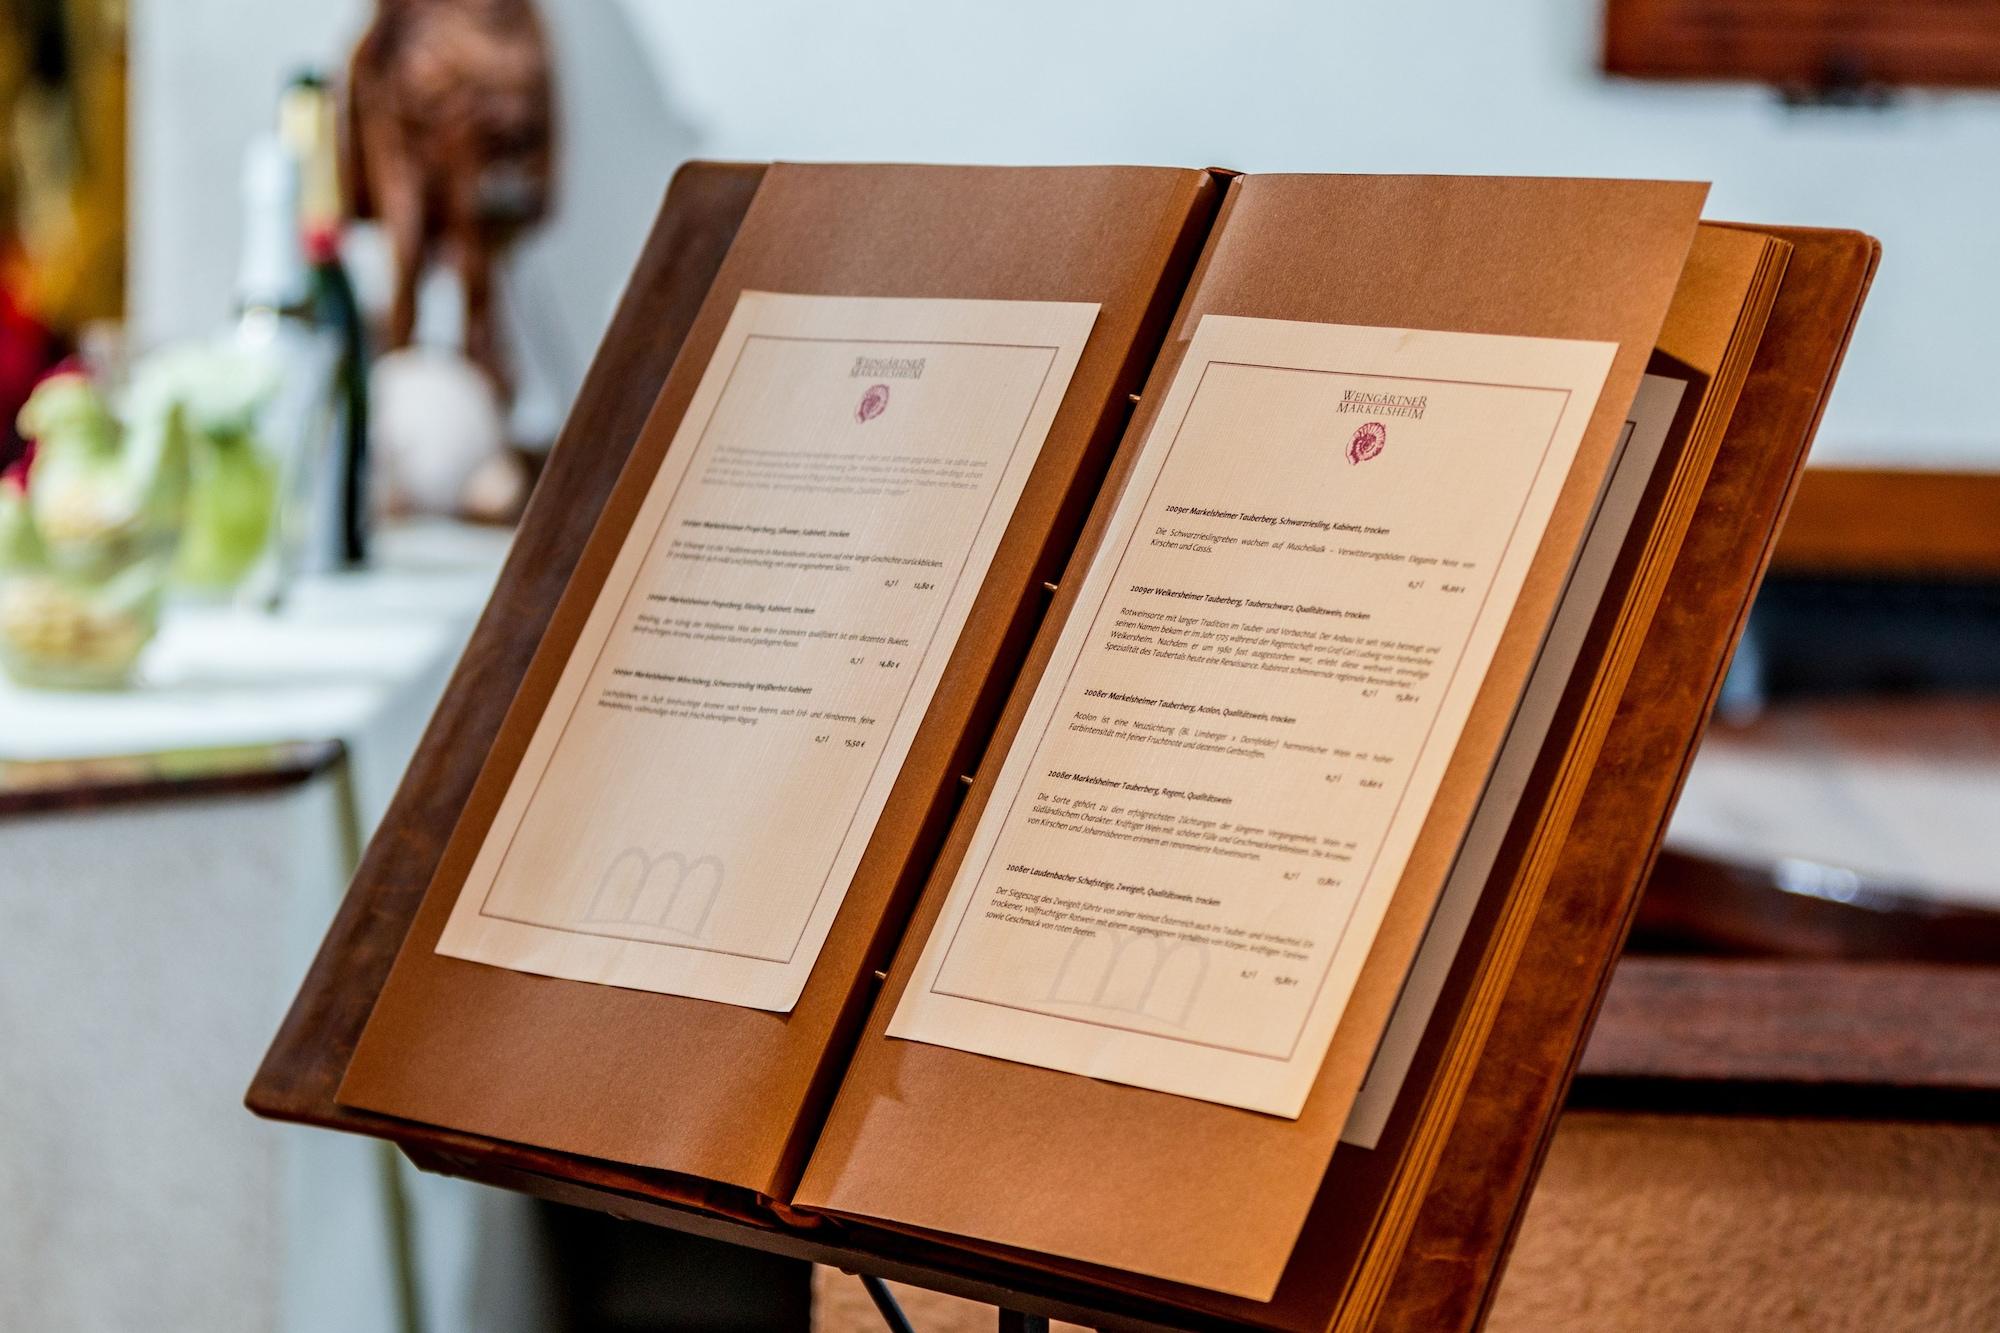 WEINGÄRTNER
MARKELSHEIM
Markelsheimer Propstberg, Silvaner, Kabinett, trocken
Der Silvaner ist die Traditionssorte in Markelsheim und kann auf eine lange Geschichte zurückblicken.
Er präsentiert sich mild und feinfruchtig mit einer angenehmen Säure.
0,7 l 12,80 €
Markelsheimer Propstberg, Riesling, Kabinett, trocken
Riesling, der König der Weißweine. Was den Wein besonders qualifiziert ist ein dezentes Bukett,
feinfruchtiges Aroma, eine pikante Säure und packende Rasse.
0,7 l 14,80 €
Markelsheimer Mönchsberg, Schwarzriesling Weißherbst Kabinett
Lachsfarben, im Duft feinfruchtige Aromen nach roten Beeren, auch Erd- und Himbeeren, feine
Mandelnote, vollmundige Art mit frisch-lebendigem Abgang.
0,7 l 15,50 €
WEINGÄRTNER
MARKELSHEIM
2009er Markelsheimer Tauberberg, Schwarzriesling, Kabinett, trocken
Die Schwarzrieslingreben wachsen auf Muschelkalk - Verwitterungsböden. Elegante Note von
Kirschen und Cassis.
0,7 l 16,00 €
2009er Weikersheimer Tauberberg, Tauberschwarz, Qualitätswein, trocken
Rotweinsorte mit langer Tradition im Tauber- und Vorbachtal. Der Anbau ist seit 1560 bezeugt und
seinen Namen bekam er im Jahr 1725 während der Regentschaft von Graf Carl Ludwig von Hohenlohe
Weikersheim. Nachdem er um 1980 fast ausgestorben war, erlebt diese weltweit einmalige
Spezialität des Taubertals heute eine Renaissance. Rubinrot schimmernde regionale Besonderheit.
0,7 l 15,80 €
2008er Markelsheimer Tauberberg, Acolon, Qualitätswein, trocken
Acolon ist eine Neuzüchtung (Bl. Limberger x Dornfelder) harmonischer Wein mit hoher
Farbintensität mit feiner Fruchtnote und dezenten Gerbstoffen.
0,7 l
2008er Markelsheimer Tauberberg, Regent, Qualitätswein
Die Sorte gehört zu den erfolgreichsten Züchtungen der jüngeren Vergangenheit. Wein mit
südländischem Charakter. Kräftiger Wein mit schöner Fülle und Geschmackserlebnissen. Die Aromen
von Kirschen und Johannisbeeren erinnern an renommierte Rotweinsorten.
0,7 l
2008er Laudenbacher Schafsteige, Zweigelt, Qualitätswein, trocken
Der Siegeszug des Zweigelt führte von seiner Heimat Österreich auch ins Tauber- und Vorbachtal. Ein
trockener, vollfruchtiger Rotwein mit einem ausgewogenen Verhältnis von Körper, kräftigen Tannen
sowie Geschmack von roten Beeren.
0,7 l 15,80 €